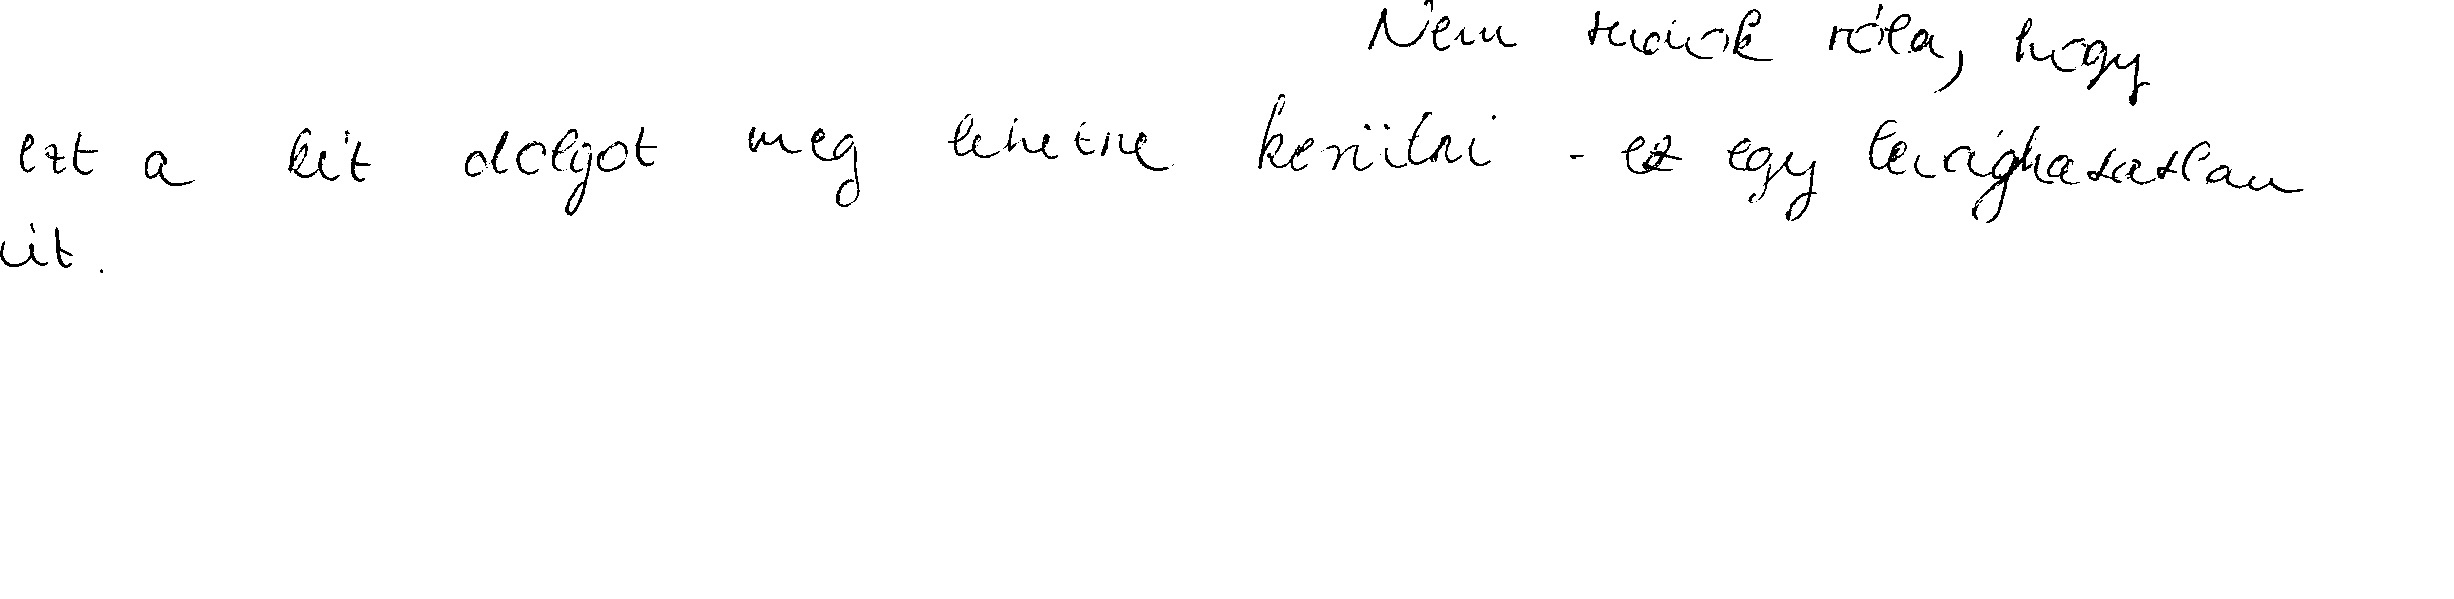 Nem tudok róla, hogy
ezt a két dolgot meg lehetne kerülni - ez egy levághatatlan
út.